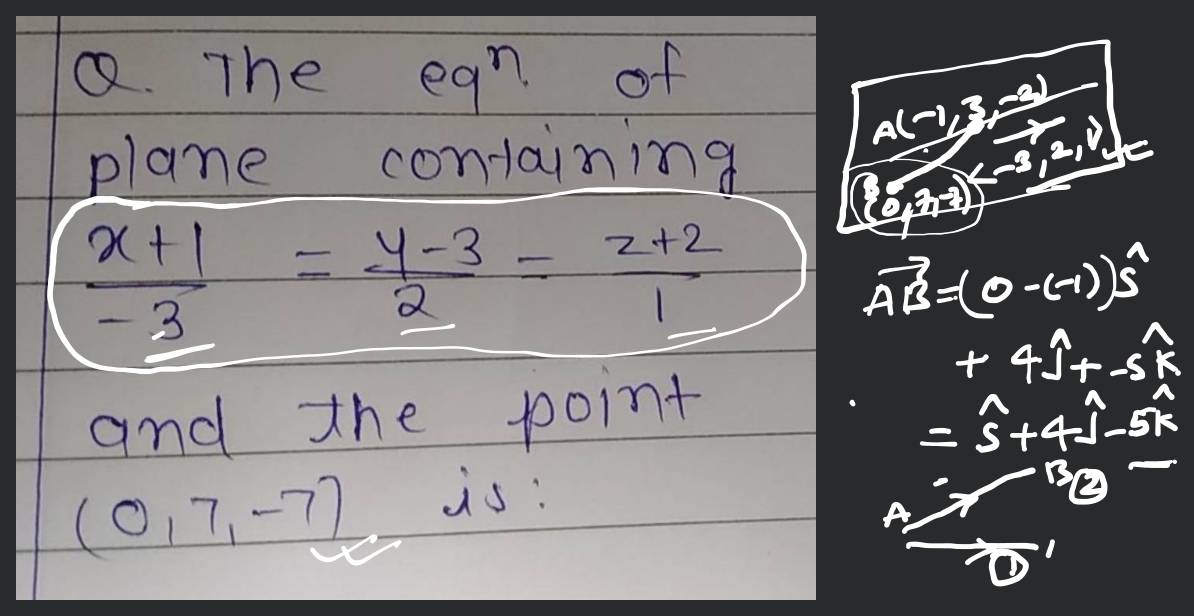 Q. The eqⁿ of
plane containing
x+1/-3 = y-3/2 = z+2/1
and the point
(0,7,-7) is:
A(-1,3,-2)
<-3,2,1>
B
(0,7,-7)
AB=(0-(-1))î
+ 4ĵ+-5k̂
= î+4ĵ-5k̂
B ②
A
①